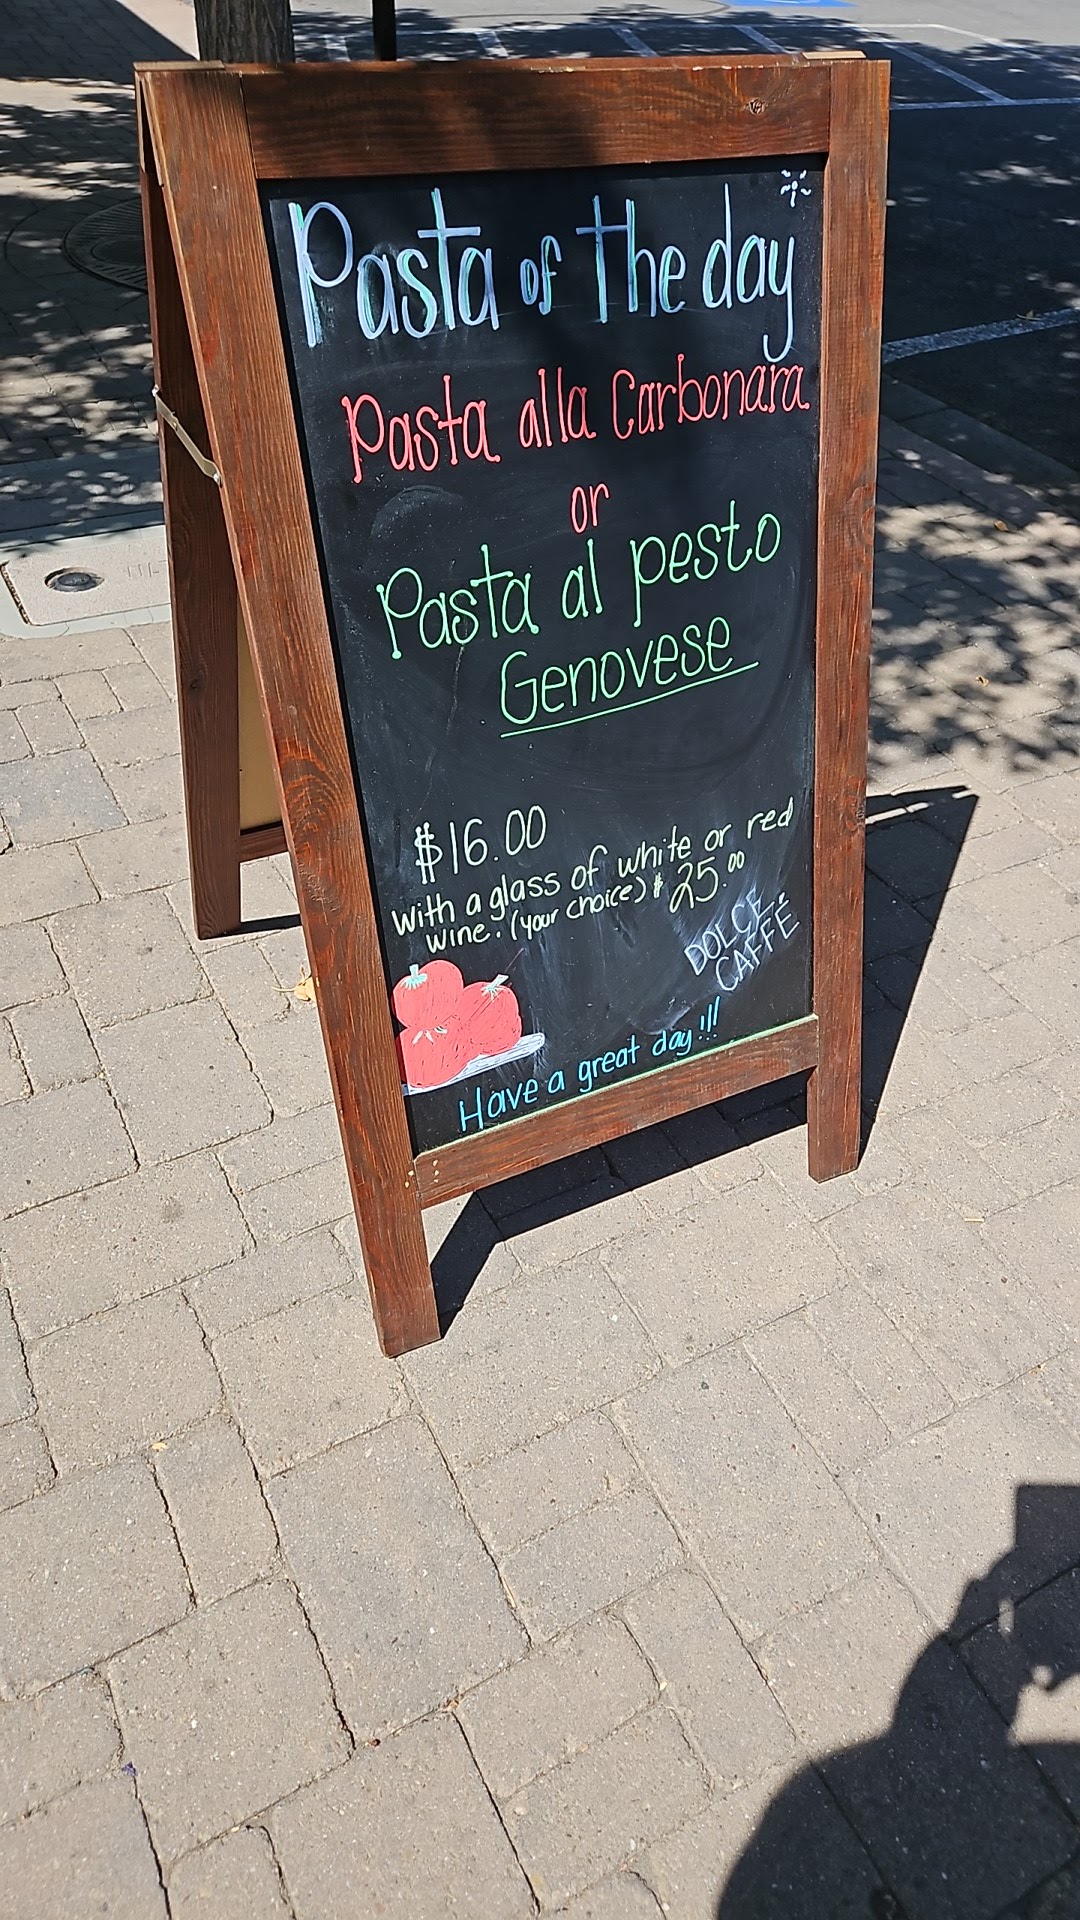 Pasta of the day
Pasta alla Carbonara
or
Pasta al pesto
Genovese
$16.00
with a glass of white or red
wine. (your choice) $25.00
DOLCE
CAFFÈ
Have a great day!!!